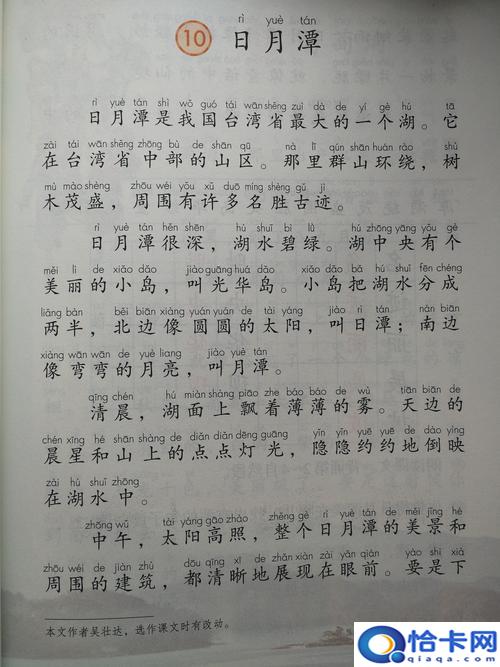 rì yuè tán
10 日月潭
rì yuè tán shì wǒ guó tái wān shěng zuì dà de yí gè hú tā
日月潭是我国台湾省最大的一个湖。它
zài tái wān shěng zhōng bù de shān qū nà lǐ qún shān huán rào shù
在台湾省中部的山区。那里群山环绕，树
mù mào shèng zhōu wéi yǒu xǔ duō míng shèng gǔ jì
木茂盛，周围有许多名胜古迹。
rì yuè tán hěn shēn hú shuǐ bì lǜ hú zhōng yāng yǒu gè
日月潭很深，湖水碧绿。湖中央有个
měi lì de xiǎo dǎo jiào guāng huá dǎo xiǎo dǎo bǎ hú shuǐ fēn chéng
美丽的小岛，叫光华岛。小岛把湖水分成
liǎng bàn běi biān xiàng yuán yuán de tài yáng jiào rì tán nán biān
两半，北边像圆圆的太阳，叫日潭；南边
xiàng wān wān de yuè liang jiào yuè tán
像弯弯的月亮，叫月潭。
qīng chén hú miàn shàng piāo zhe báo báo de wù tiān biān de
清晨，湖面上飘着薄薄的雾。天边的
chén xīng hé shān shàng de diǎn diǎn dēng guāng yǐn yǐn yuē yuē de dào yìng
晨星和山上的点点灯光，隐隐约约地倒映
zài hú shuǐ zhōng
在湖水中。
zhōng wǔ tài yáng gāo zhào zhěng gè rì yuè tán de měi jǐng hé
中午，太阳高照，整个日月潭的美景和
zhōu wéi de jiàn zhù dōu qīng xī de zhǎn xiàn zài yǎn qián yào shi xià
周围的建筑，都清晰地展现在眼前。要是下
本文作者吴壮达，选作课文时有改动。
恰卡网
qiaqa.com